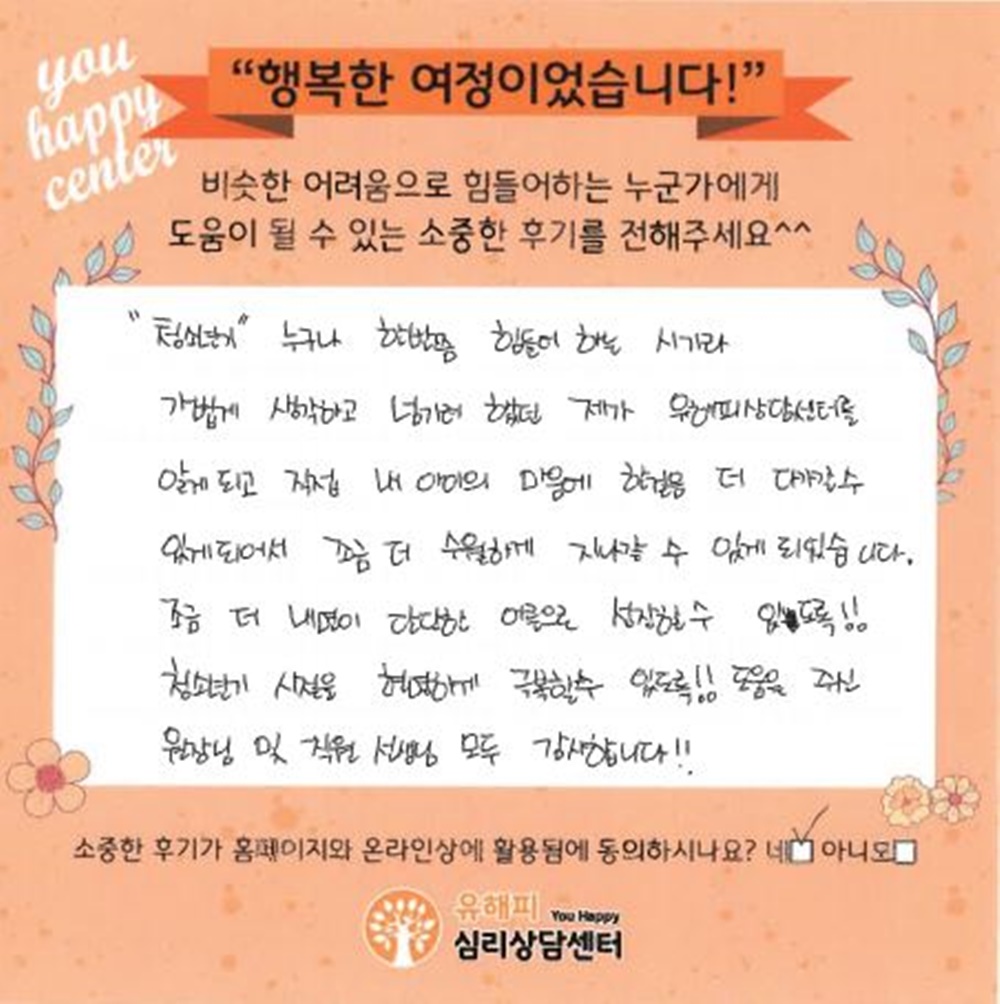 you
happy
center
“행복한 여정이었습니다!”
비슷한 어려움으로 힘들어하는 누군가에게
도움이 될 수 있는 소중한 후기를 전해주세요^^
"청소년기" 누구나 한번쯤 힘들어 하는 시기라
가볍게 생각하고 넘기려 했던 제가 유해피상담센터를
알게되고 직접 내 아이의 마음에 한걸음 더 다가갈수
있게되어서 조금 더 수월하게 지나갈 수 있게 되었습니다.
조금 더 내면이 단단한 어른으로 성장할수 있도록!!
청소년기 시절을 현명하게 극복할수 있도록!! 도움을 주신
원장님 및 직원 선생님 모두 감사합니다!!
소중한 후기가 홈페이지와 온라인상에 활용됨에 동의하시나요? 네 아니오
유해피 You Happy
심리상담센터